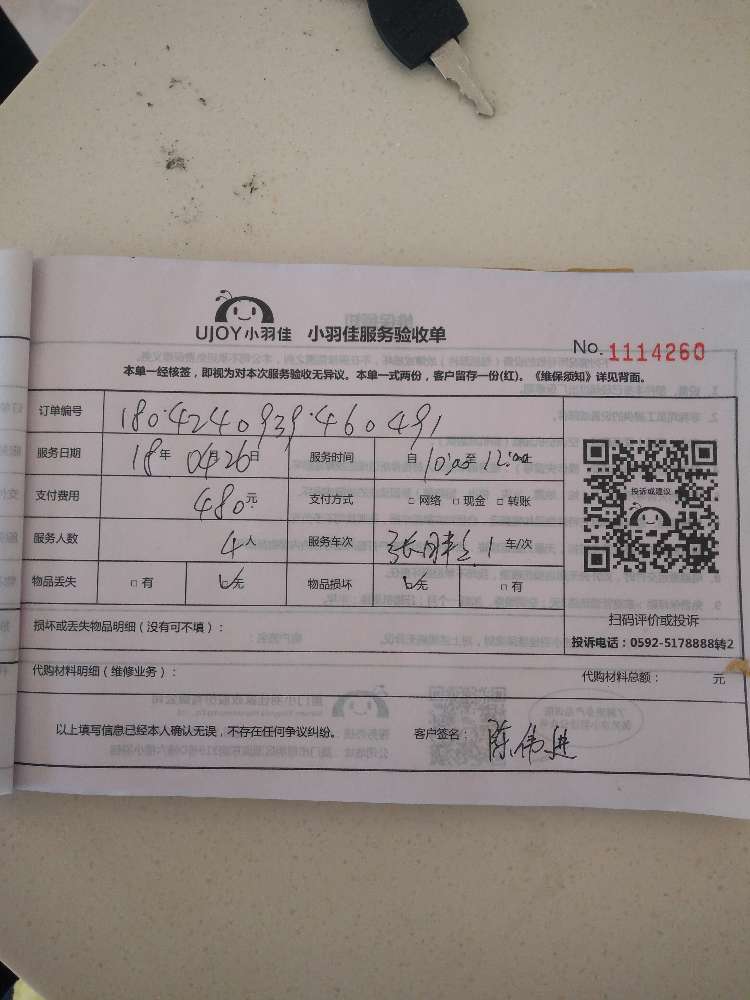 UJOY小羽佳 小羽佳服务验收单
No. 1114260
本单一经核签，即视为对本次服务验收无异议。本单一式两份，客户留存一份(红)。《维保须知》详见背面。
订单编号 1804240939460491
服务日期 18年 04月26日 服务时间 自 10:00至 12:00
支付费用 480元 支付方式 □ 网络 □ 现金 □ 转账
服务人数 4人 服务车次 1 车/次
物品丢失 □ 有 物品损坏 □ 有
投诉或建议
扫码评价或投诉
投诉电话：0592-5178888转2
损坏或丢失物品明细（没有可不填）：
代购材料明细（维修业务）： 代购材料总额： 元
以上填写信息已经本人确认无误，不存在任何争议纠纷。 客户签名： 陈伟进